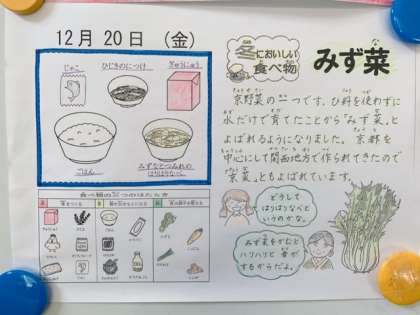 12月20日（金）
じゃこ
ひじきのにつけ
ぎゅうにゅう
ごはん
みずなとつみれの
はりはりなべ
冬においしい
食べ物
みず菜
京野菜の一つです。ひ料を使わずに
水だけで育てたことから「みず菜」と
よばれるようになりました。京都を
中心にして関西地方で作られてきたので
「京菜」ともよばれています。
どうして
はりはりなべと
いうのかな。
みず菜をかむと
ハリハリと音が
するからだよ。
食べ物の三つのはたらき